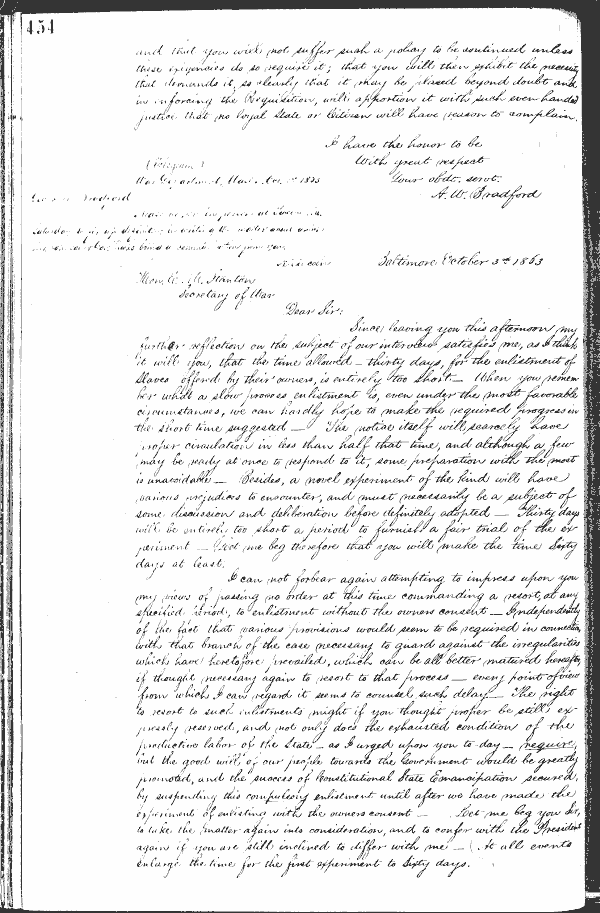 454
and that you will not suffer such a policy to be continued unless
these exigencies do so require it; that you will then exhibit the necessity
that demands it, so clearly that it may be placed beyond doubt and
in enforcing the Requisition, will apportion it with such even handed
justice that no loyal State or Citizen will have reason to complain.
I have the honor to be
With great respect
Your obdt. servt.
A. W. Bradford
(Telegram)
War Department, 1863
Bradford
Baltimore October 3rd 1863
Hon. E. M. Stanton
Secretary of War
Dear Sir:
Since leaving you this afternoon my
further reflection on the subject of our interview satisfies me, as I think
it will you, that the time allowed – thirty days, for the enlistment of
Slaves offered by their owners, is entirely too short – When you remem
ber what a slow process enlistment is, even under the most favorable
circumstances, we can hardly hope to make the required progress in
the short time suggested – The notice itself will scarcely have
proper circulation in less than half that time, and although a few
may be ready at once to respond to it, some preparation with the most
is unavoidable – Besides, a novel experiment of the kind will have
various prejudices to encounter, and must necessarily be a subject of
some discussion and deliberation before definitely adopted – Thirty days
will be entirely too short a period to furnish a fair trial of the ex
periment – Let me beg therefore that you will make the time Sixty
days at least.
I can not forbear again attempting to impress upon you
my views of passing no order at this time commanding a resort, at any
specified period, to enlistment without the owners consent – Independently
of the fact that various provisions would seem to be required in connection
with that branch of the case necessary to guard against the irregularities
which have heretofore prevailed, which can be all better matured hereafter
if thought necessary again to resort to that process – every point of view
from which I can regard it seems to counsel such delay – The right
to resort to such enlistments might if you thought proper be still ex
pressly reserved, and not only does the exhausted condition of the
productive labor of the State – as I urged upon you to day – require,
but the good will of our people towards the Government would be greatly
promoted, and the success of Constitutional State Emancipation secured,
by suspending this compulsory enlistment until after we have made the
experiment of enlisting with the owners consent – Let me beg you Sir,
to take the matter again into consideration, and to confer with the President
again if you are still inclined to differ with me – At all events
enlarge the time for the first experiment to Sixty days.